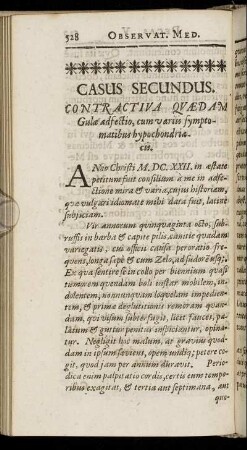 528 OBSERVAT. MED.
CASUS SECUNDUS.
CONTRACTIVA QUÆDAM
Gulæ adfectio, cum variis sympto-
matibus hypochondria-
cis.
ANno Christi M. DC. XXII. in æstate
petitum fuit consilium à me in ad-
fectione mira & varia, cujus historiam,
quæ vulgari idiomate mihi data fuit, latinè
subjiciam.
Vir annorum quinquaginta octo, sub-
russis in barba & capite pilis, canitie quadam
variegatis, cui officii causa peroratio fre-
quens, longa sæpè & cum Zelo, ad sudorē usq;.
Ex qua sentire se in collo per biennium quasi
tumorem quendam boli instar mobilem, in-
dolentem, nonnunquam loquelam impedien-
tem, & prima deglutitioni remoram quan-
dam, qui visum subterfugit, licet fauces, pa-
latium & guttur penitus inspiciantur, opina-
tur. Neglexit hoc malum, at gravius quod-
dam in ipsum sæviens, opem undiq; petere co-
git, quod jam per annum duravit. Perio-
dica enim palpitatio cordis, certis eum tempo-
ribus exagitat, & tertia aut septimana, aut